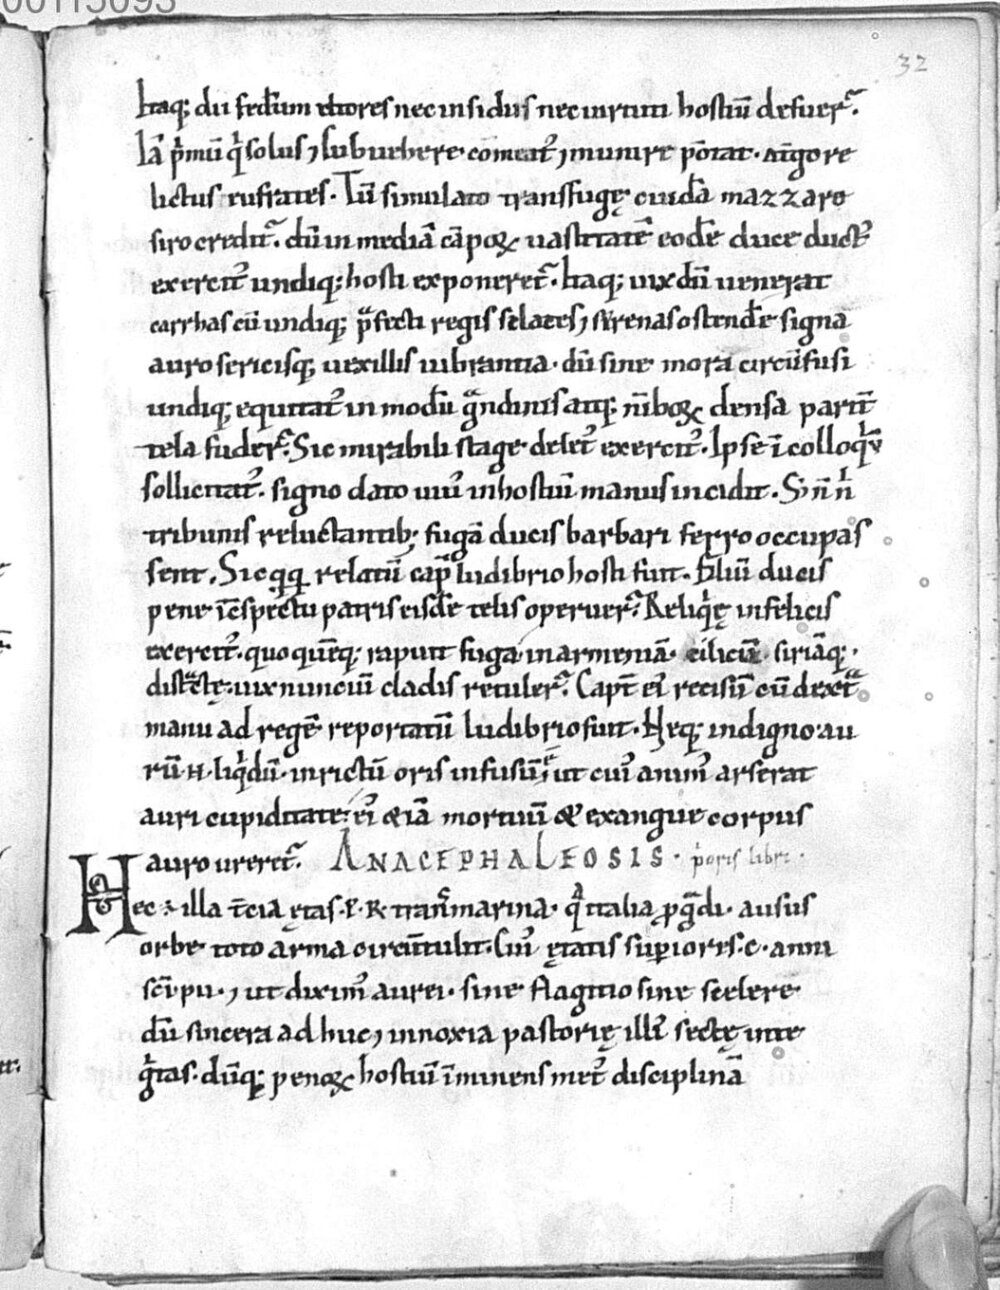 00115093
32
Itaq; dii fed̄um ultores nec insidiis nec uirtuti hostiū defuer̃.
Iā p̄mū q̇ solus ⁊ subuehere comeat᷒ ⁊ munire pōrat. r̄ligo re
lictus eufrates. Tū simulato transfugę cuidā mazzaro
siro credit̃. dū in mediā cāpoꝝ uastitatē eodē duce duct᷒
exercit᷒ undiq; hosti exponeret̃. Itaq; uix dū uenerat
carrhas cū undiq; p̄fecti regis silaces ⁊ sirenas ostendēr signa
auro sericisq; uexillis uibrantia. dū sine mora circūfusi
undiq; equitat᷒ in modū gͣndinis atq; nīboꝝ densa parit̄
tela fuder̃. Sic mirabili stage delet᷒ exercit᷒. Ipse ī colloq̇ū
sollicitat᷒. signo dato uiu᷒ in hostiū manus incidit. Si n̄ n̄
tribunis reluctantib; fugā ducis barbari ferro occupas
sent. Sic q̄q; relatū cap̄ ludibrio hosti fuit. Filiū ducis
pene ī c̄spectu patris eisdē telis operuer̃. Reliq̇ę infelicis
exercit᷒. quo quēq; rapuit fuga in armeniā. ciliciā. siriāq;.
distͣctę. uix nunciū cladis retuler̃. Capt̄ ei᷒ recisū cū dext̄ͣ
manu ad regē reportatū ludibrio fuit. Neq; indigno. au
rū .n. liq̇dū. in rictū oris infusū ē. ut cui᷒ anim᷒ arserat
auri cupiditate. ei᷒ etiā mortuū & exangue corpus
auro ureret̃. ANACEPHALEOSIS. p̄oris libri.
Hec ē illa t̄cia ętas .P.R. trān̄smarina. qͣ italia ꝓgͣdi ausus
orbe toto arma circūtulit. Cui᷒ ętatis supiores .c. anni
sc̄i. pii. ⁊ ut dixim᷒ aurei. sine flagitio sine scelere
dū sincera ad huc ⁊ innoxia pastorię illi᷒ sectę inte
gͥtas. dūq; penoꝝ hostiū īminens met᷒ disciplinā